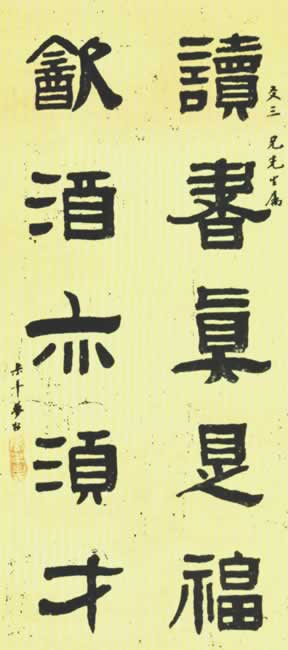 三 兄先生屬
讀書眞是福
㱃酒亦須才